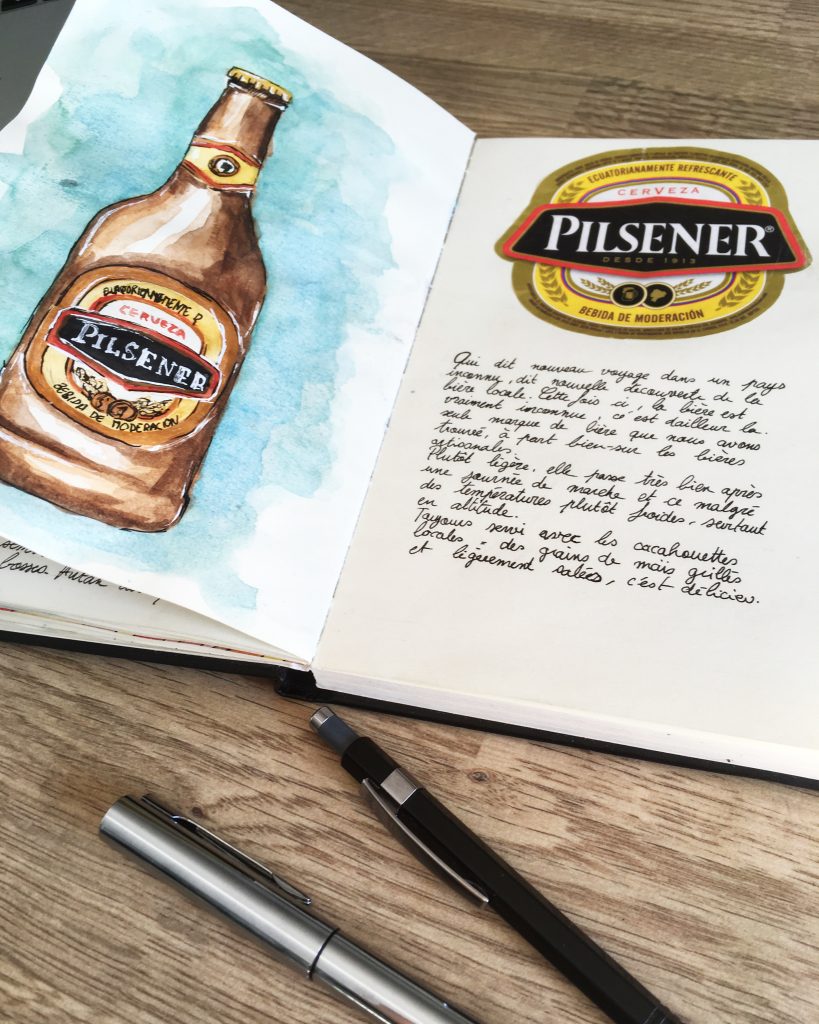 ECUATORIANAMENTE R
CERVEZA
PILSENER
BEBIDA DE MODERACION
ECUATORIANAMENTE REFRESCANTE
CERVEZA
PILSENER®
DESDE 1913
BEBIDA DE MODERACIÓN
Qui dit nouveau voyage dans un pays
inconnu, dit nouvelle découverte de la
bière locale. Cette fois ci, la bière est
vraiment inconnue, c'est dailleur la
seule marque de bière que nous avons
trouvée, à part bien-sur les bières
artisanales.
Plutôt légère, elle passe très bien après
une journée de marche et ce malgré
des températures plutôt froides, surtout
en altitude.
Toujours servi avec les cacahouettes
locales : des grains de maïs grillés
et légèrement salées, c'est délicieu.